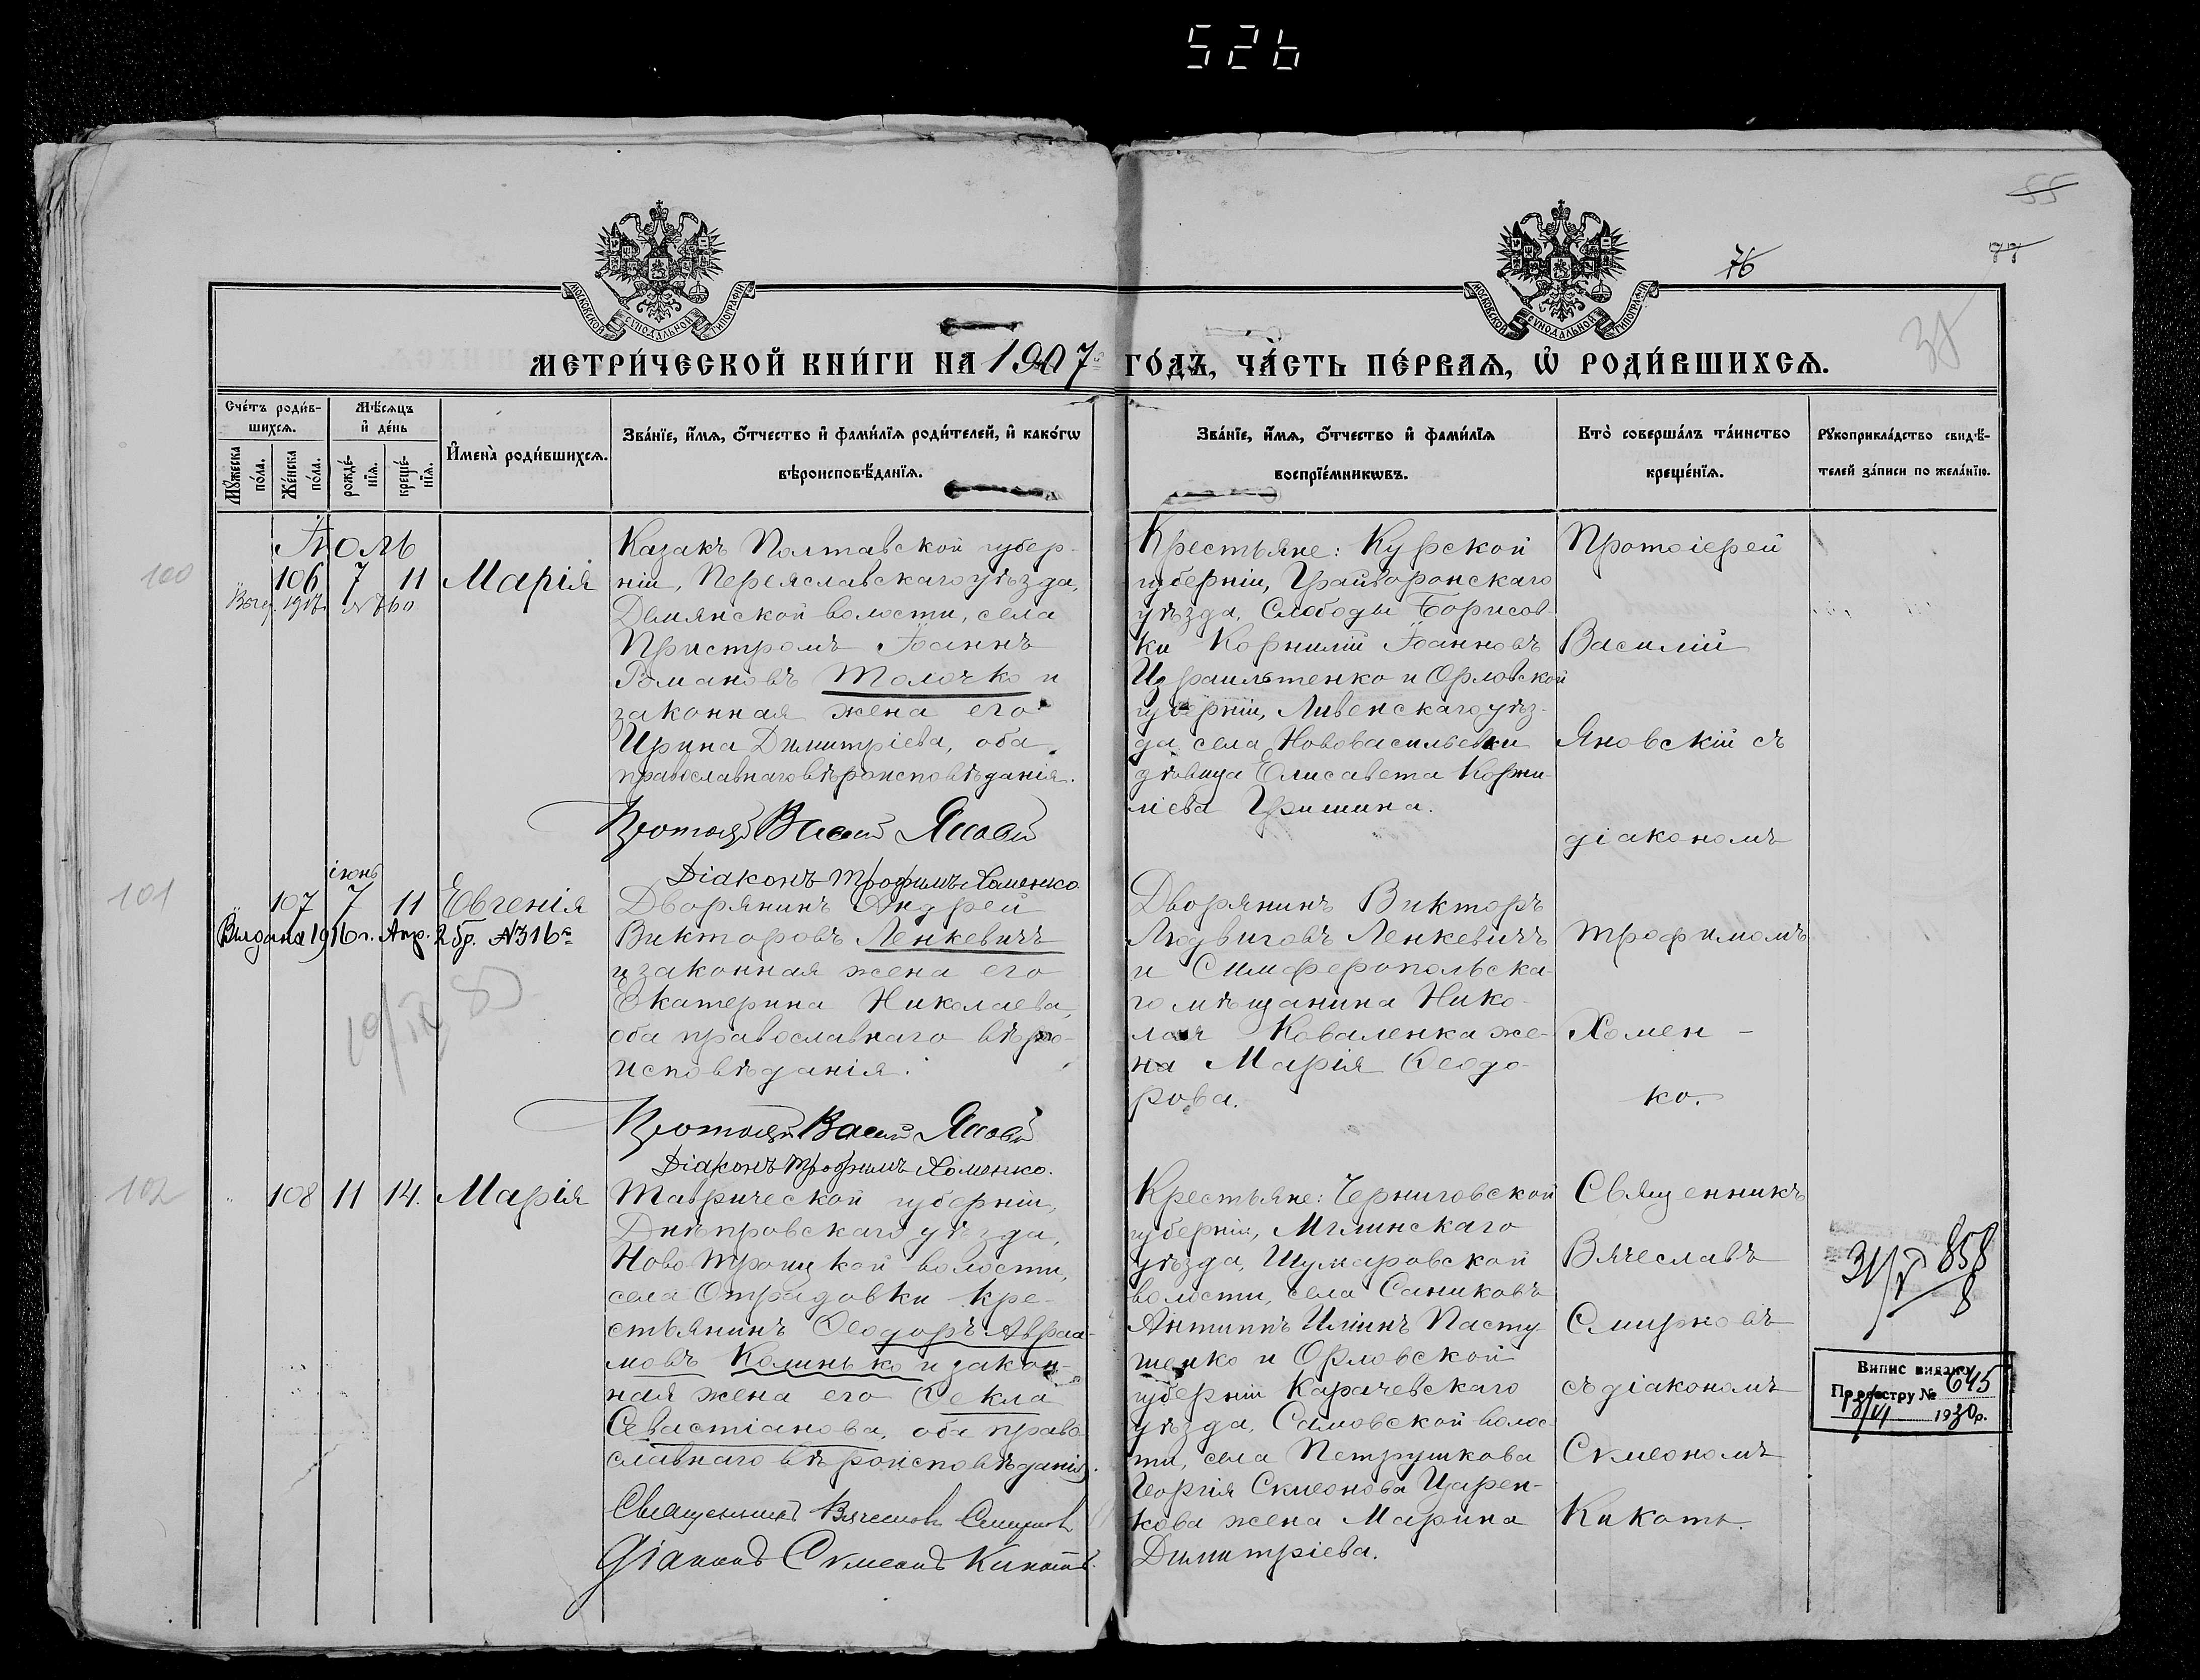 526
55
77
76
38
МОСКОВСКОЙ СѴНОДАЛЬНОЙ ТИПОГРАФІИ
МОСКОВСКОЙ СѴНОДАЛЬНОЙ ТИПОГРАФІИ
МЕТРИ́ЧЕСКОЙ КНИ́ГИ НА 1907 ГО́ДЪ, ЧА́СТЬ ПЕ́РВАѦ, Ѡ҆ РОДИ́ВШИХСѦ.
Сче́тъ роди́в-
шихсѧ.
Мꙋ́жеска
по́ла.
Же́нска
по́ла.
Мѣ́сѧцъ
и҆ де́нь
рожде́-
нїѧ.
креще́-
нїѧ.
И҆мена̀ роди́вшихсѧ.
Зва́нїе, и҆́мѧ, ѻ҆́тчество и҆ фами́лїѧ роди́телей, и҆ како́гѡ
вѣроисповѣ́данїѧ.
Зва́нїе, и҆́мѧ, ѻ҆́тчество и҆ фами́лїѧ
воспрїе́мникѡвъ.
Кто̀ соверша́лъ та́инство
креще́нїѧ.
Рꙋкоприкла́дство свидѣ́-
телей за́писи по жела́нїю.
100
Іюль
106 7 11 Марія
1917 № 760
Казакъ Полтавской губер-
ніи, Переяславскаго уѣзда,
Демянской волости, села
Пристромъ Іоаннъ
Романовъ Толочко и
законная жена его
Ирина Димитріева, оба
православнаго вѣроисповѣданія.
Протоіерей Василій Яновскій
Діаконъ Трофимъ Хоменко
Крестьяне: Курской
губерніи, Грайворонскаго
уѣзда, Слободы Борисов-
ки Корнилій Іоанновъ
Израильтенко и Орловской
губерніи, Ливенскаго уѣз-
да села Нововасильевки
дѣвица Елисавета Корни-
ліева Гришина.
Протоіерей
Василій
Яновскій съ
діакономъ
Трофимомъ
Хомен-
ко.
101
іюнь
107 7 11 Евгенія
Выдана 1916 г. Апр. 2 бр. № 316
19/IV 85
Дворянинъ Андрей
Викторовъ Ленкевичъ
и законная жена его
Екатерина Николаева,
оба православнаго вѣро-
исповѣданія.
Протоіерей Василій Яновскій
Діаконъ Трофимъ Хоменко.
Дворянинъ Викторъ
Людвиговъ Ленкевичъ
и Симферопольска-
го мѣщанина Нико-
лая Коваленка же-
на Марія Ѳеодо-
рова.
102
108 11 14. Марія
Таврической губерніи,
Днѣпровскаго уѣзда,
Ново Троицкой волости,
села Отрадовки кре-
стьянинъ Ѳеодоръ Авраа-
мовъ Колинько и закон-
ная жена его Ѳекла
Севастіанова, оба право-
славнаго вѣроисповѣданія.
Священникъ Вячеславъ Смирновъ
Діаконъ Сѵмеонъ Кикоть.
Крестьяне: Черниговской
губерніи, Мглинскаго
уѣзда, Шумаровской
волости, села Саниковъ
Антипъ Иліинъ Пасту-
шенко и Орловской
губерніи Карачевскаго
уѣзда, Самовской волос-
ти, села Петрушкова
Георгія Сѵмеонова Царен-
кова жена Марина
Димитріева.
Священникъ
Вячеславъ
Смирновъ
съ діакономъ
Сѵмеономъ
Кикоть.
31/V 858
8
Випис видано
По реєстру № 645
1930 р.